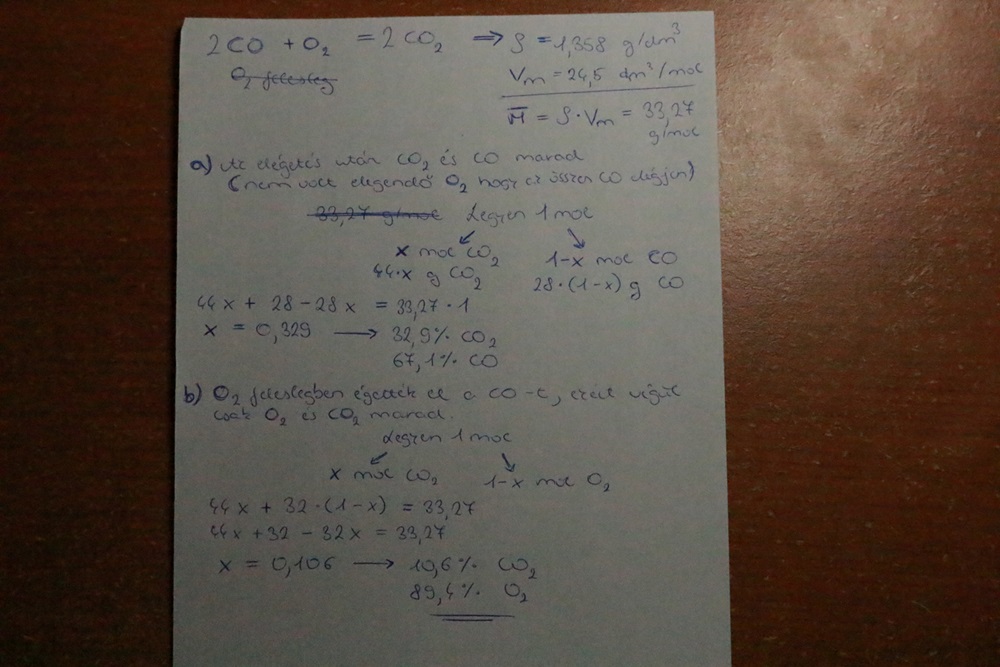 2CO + O₂ = 2CO₂ ⟹ ρ = 1,358 g/dm³
O₂ felesleg
Vm = 24,5 dm³/mol
M̅ = ρ · Vm = 33,27
g/mol
a) Az elégetés után CO₂ és CO marad
(nem volt elegendő O₂ hogy az összes CO elégjen)
33,27 g/mol Legyen 1 mol
x mol CO₂ 1-x mol CO
44·x g CO₂ 28·(1-x) g CO
44x + 28 - 28x = 33,27·1
x = 0,329 → 32,9% CO₂
67,1% CO
b) O₂ feleslegben égették el a CO-t, ezért végül
csak O₂ és CO₂ marad.
Legyen 1 mol
x mol CO₂ 1-x mol O₂
44x + 32·(1-x) = 33,27
44x + 32 - 32x = 33,27
x = 0,106 → 10,6% CO₂
89,4% O₂